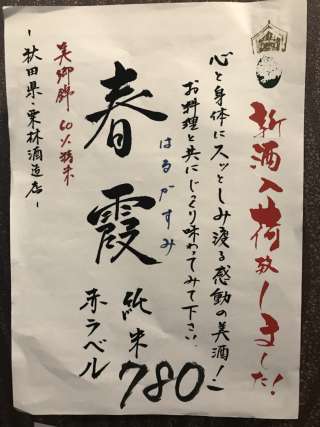 新酒入荷致しました!
心と身体にスッとしみ渡る感動の美酒!
お料理と共にじっくり味わってみて下さい。
はるがすみ
春霞
純米
赤ラベル
780-
美郷錦・60%精米
-秋田県・栗林酒造店-